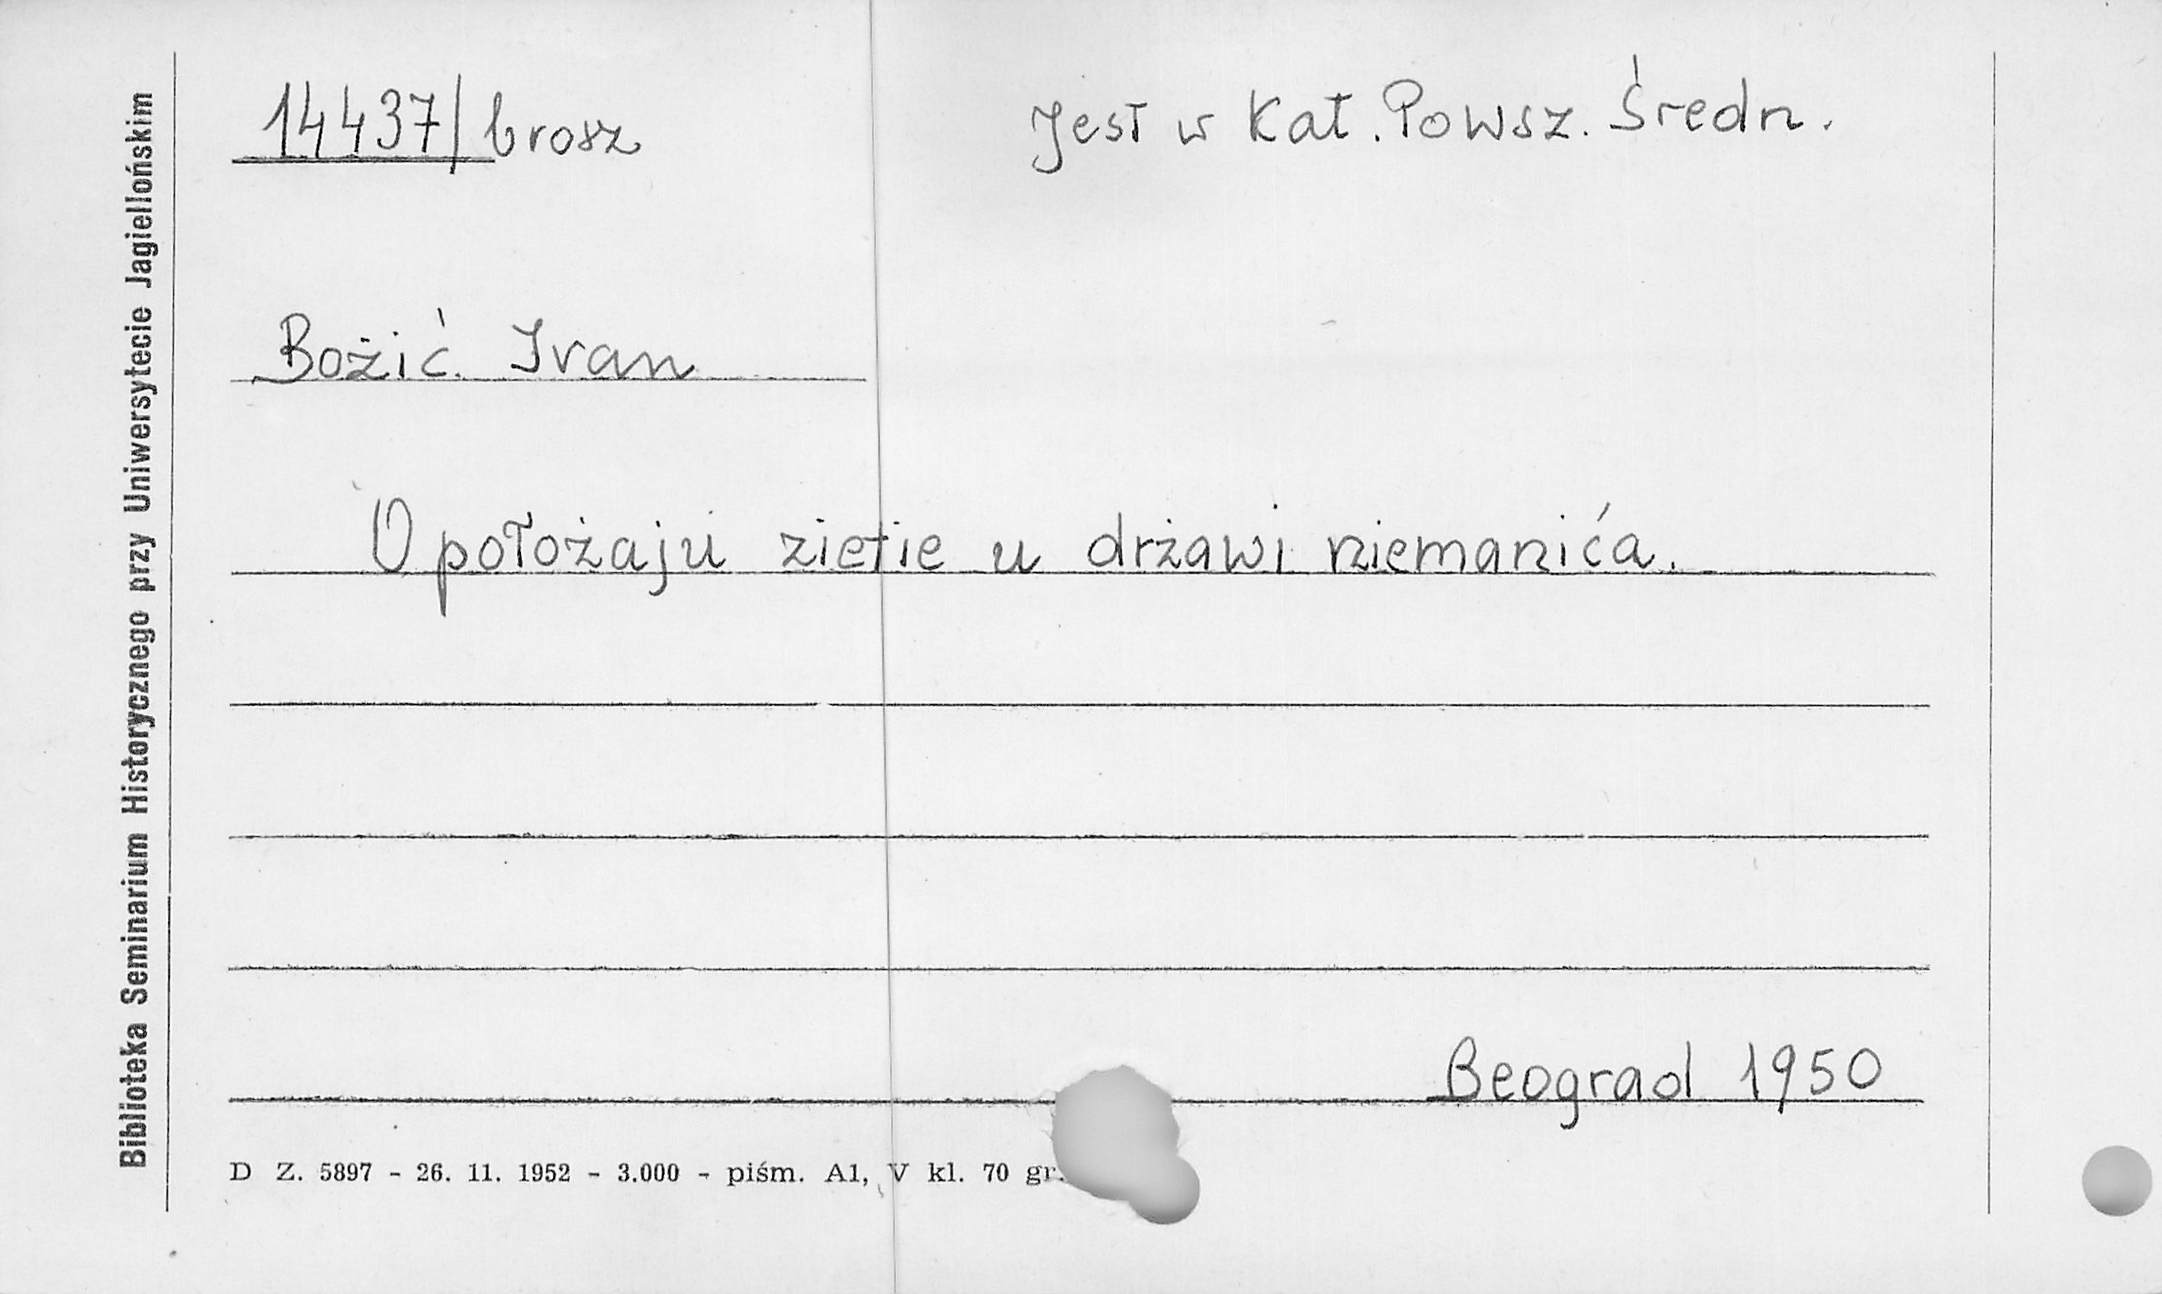 14437/brosz
Jest w Kat. Powsz. Średn.
Božić Ivan
O położaju zietie u drżawi niemanića.
Beograd 1950
D Z. 5897 - 26. 11. 1952 - 3.000 - piśm. A1, V kl. 70 gr.
Biblioteka Seminarium Historycznego przy Uniwersytecie Jagiellońskim